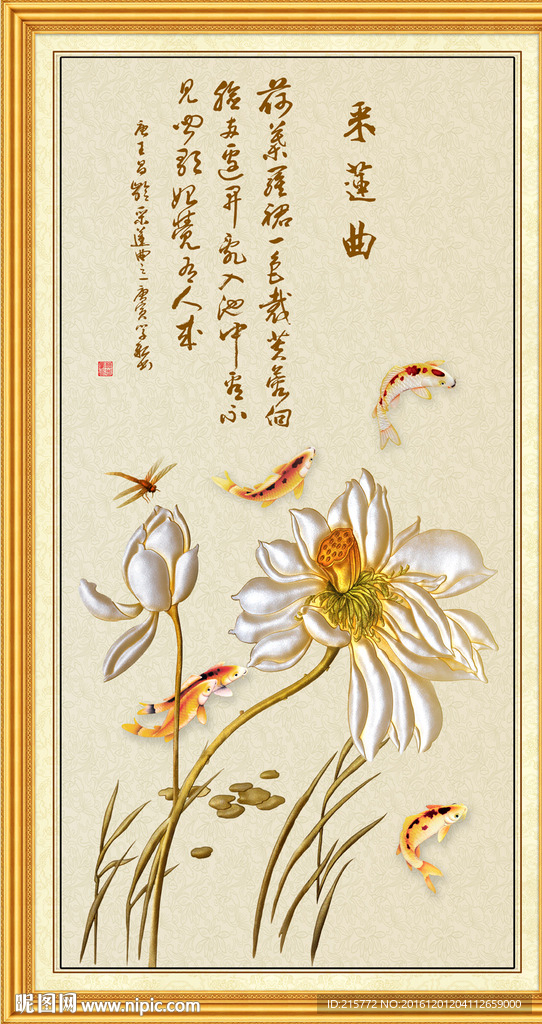 采蓮曲
荷葉羅裙一色裁芙蓉向
臉兩邊開亂入池中看不
見聞歌始覺有人來
唐王昌齡采蓮曲之一庚寅
昵图网 www.nipic.com
ID:215772 NO:20161201204112659000